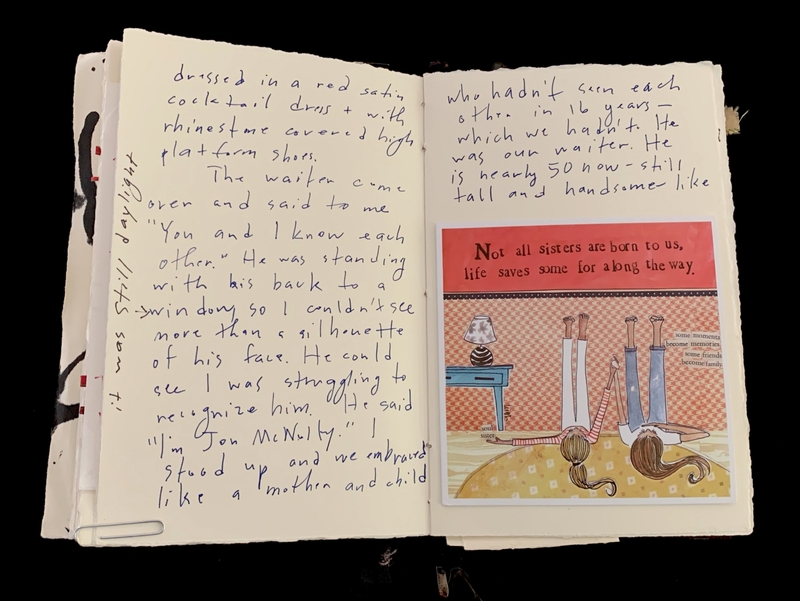 dressed in a red satin
cocktail dress + with
rhinestone covered high
platform shoes.
The waiter came
over and said to me
"You and I know each
other." He was standing
with his back to a
→window, so I couldn't see
more than a silhouette
of his face. He could
see I was struggling to
recognize him. He said
"I'm Jon McNulty." I
stood up and we embraced
like a mother and child
it was still daylight
who hadn't seen each
other in 16 years—
which we hadn't. He
was our waiter. He
is nearly 50 now - still
tall and handsome like
Not all sisters are born to us,
life saves some for along the way.
some moments
become memories,
some friends
become family